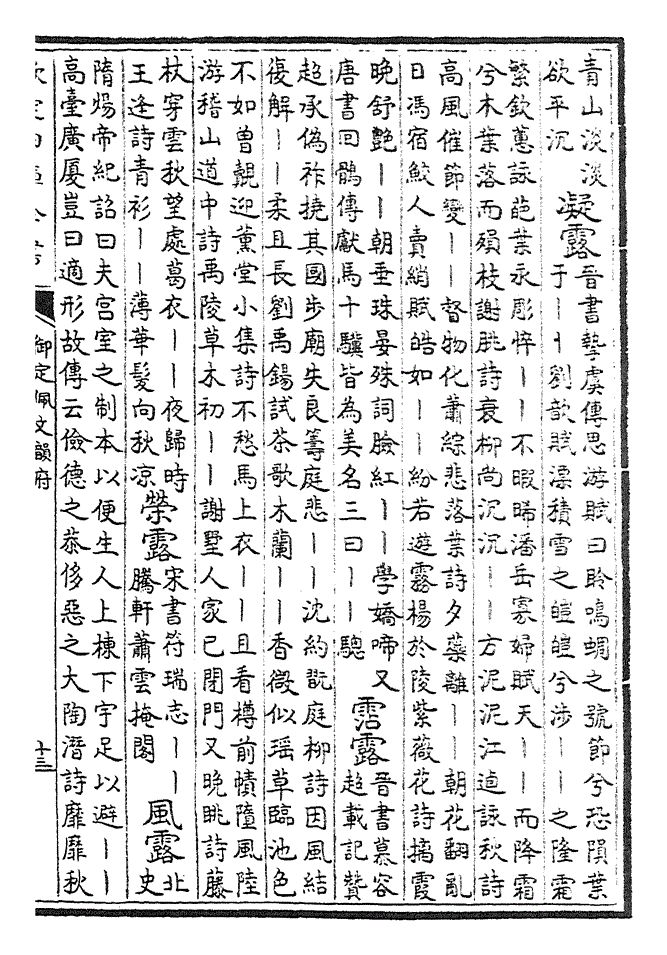 青山淡淡
欲平沉
凝露
晉書摯虞傳思游賦曰聆鳴蜩之號節兮恐隕葉
于丨丨劉歆賦漂積雪之皚皚兮涉丨丨之隆霜
繁欽蕙詠葩葉永彫悴丨丨不暇晞潘岳寡婦賦天丨丨而降霜
兮木葉落而殞枝謝朓詩衰柳尚沉沉丨丨方泥泥江逌詠秋詩
高風催節變丨丨督物化蕭綜悲落葉詩夕蘂離丨丨朝花翻亂
日馮宿鮫人賣綃賦皓如丨丨紛若遊霧楊於陵紫薇花詩摛霞
晚舒艷丨丨朝垂珠晏殊詞臉紅丨丨學嬌啼又
唐書回鶻傳獻馬十驥皆為美名三曰丨丨驄
霑露
晉書慕容
超載記贊
超承偽祚撓其國步廟失良籌庭悲丨丨沈約翫庭柳詩因風結
復解丨丨柔且長劉禹錫試茶歌木蘭丨丨香微似瑤草臨池色
不如曾覿迎薰堂小集詩不愁馬上衣丨丨且看樽前幘墮風陸
游稽山道中詩禹陵草木初丨丨謝墅人家已閉門又晚眺詩藤
杖穿雲秋望處葛衣丨丨夜歸時
王逢詩青衫丨丨薄華髮向秋凉
榮露
宋書符瑞志丨丨
騰軒蕭雲掩閣
風露
北
史
隋煬帝紀詔曰夫宮室之制本以便生人上棟下宇足以避丨丨
高臺廣厦豈曰適形故傳云儉德之恭侈惡之大陶潛詩靡靡秋
欽定四庫全書
御定佩文韻府
十三